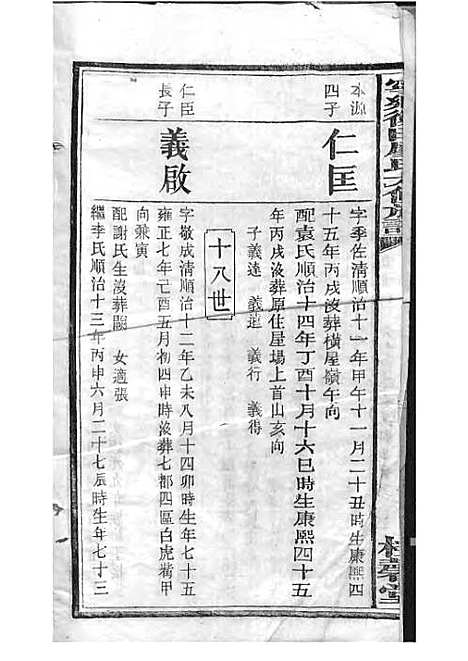 本源
四子
仁匡
字季佐清順治十一年甲午十一月二十丑時生康熙四
十五年丙戌沒葬橫屋嶺午向
配袁氏順治十四年丁酉十月十六巳時生康熙四十五
年丙戌沒葬原住屋場上首山亥向
子義達 義進 義行 義得
十八世
仁臣
長子
義啟
字敬成清順治十二年乙未八月十四卯時生年七十五
雍正七年己酉五月初四申時沒葬七都四區白虎嘴甲
向兼寅
配謝氏生沒葬闕 女適張
繼李氏順治十三年丙申六月二十七辰時生年七十三